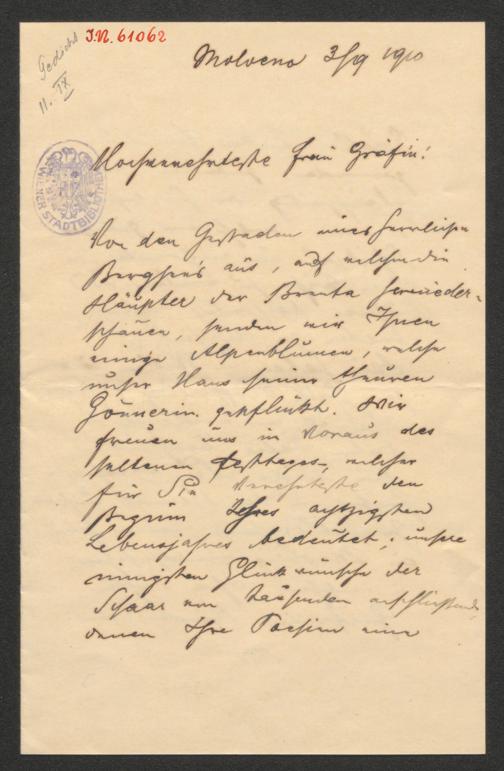 I.N. 61062
Gedicht
11. IX
Molveno 3/9 1910
WIENER STADTBIBLIOTHEK
Hochverehrteste Frau Gräfin!
Von den Gestaden eines herrlichen
Bergsees aus, auf welchen die
Häupter der Brenta hernieder-
schauen, senden wir Ihnen
einige Alpenblumen, welche
unser Hans seiner theuren
Gönnerin gepflückt. Wir
freuen uns im Voraus des
seltenen Festtages, welcher
für Sie Verehrteste den
Beginn Ihres achtzigsten
Lebensjahres bedeutet, unsre
innigsten Glückwünsche der
Schaar von Tausenden anschließend,
denen Ihre Poesien eine